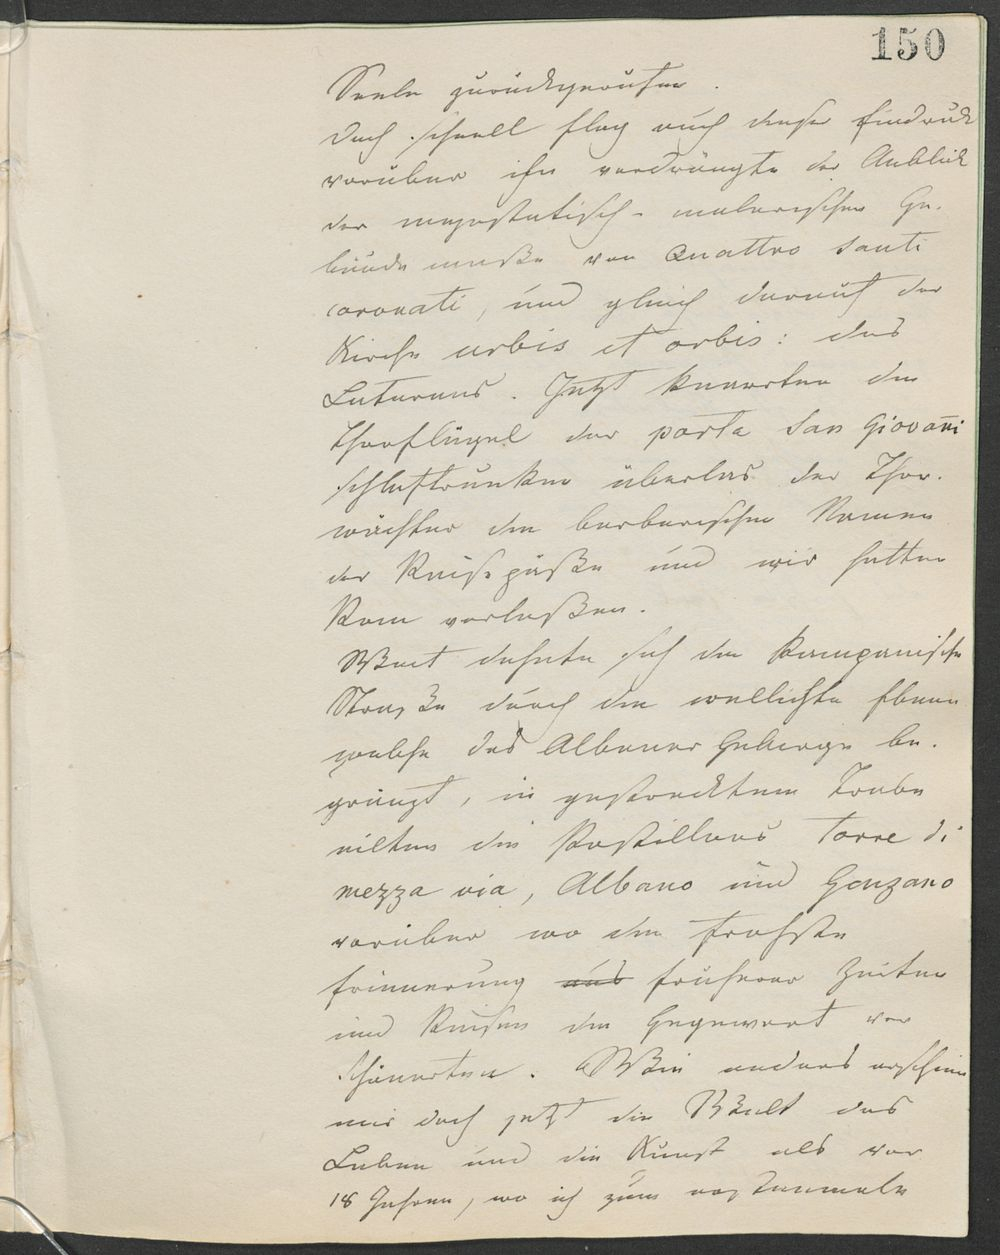 150
Seele zurückgerufen.
Doch schnell flog auch dieser Eindruck
vorüber ihn verdrängte der Anblick
der majestätisch-malerischen Ge-
bäude maße von Quattro Santi
coronati, und gleich darauf der
Kirche urbis et orbis: des
Laterans. Jetzt knarrten die
Thorflügel der porta San Giovan̄i
schlaftrunken überlas der Thor-
wächter die barbarischen Namen
der Reisepäße und wir hatten
Rom verlaßen.
Weit dehnte sich die Kampanische
Straße durch die wellichte Ebene
welche das Albaner Gebirge be-
gränzt, in gestrecktem Trabe
eilten die Postillons Torre di
mezza via, Albano und Genzano
vorüber wo die frohste
Erinnerung aus früherer Zeiten
und Reisen die Gegenwart ver
schönerten. Wie anders erschien
mir doch jetzt die Welt das
Leben und die Kunst als vor
18 Jahren, wo ich zum erstenmale